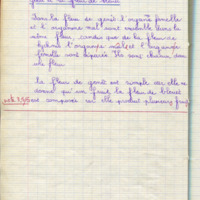 Dans la fleur de genêt l'organe femelle
et l'organe mâle sont ensemble dans la
même fleur, tandis que de la fleur de
l'organe mâle et l'organe
femelle sont séparés. Ils sont chacun dans
une fleur.
La fleur de genêt est simple car elle ne
donne qu'un fruit, la fleur de bleuet
est composée car elle produit plusieurs fruits